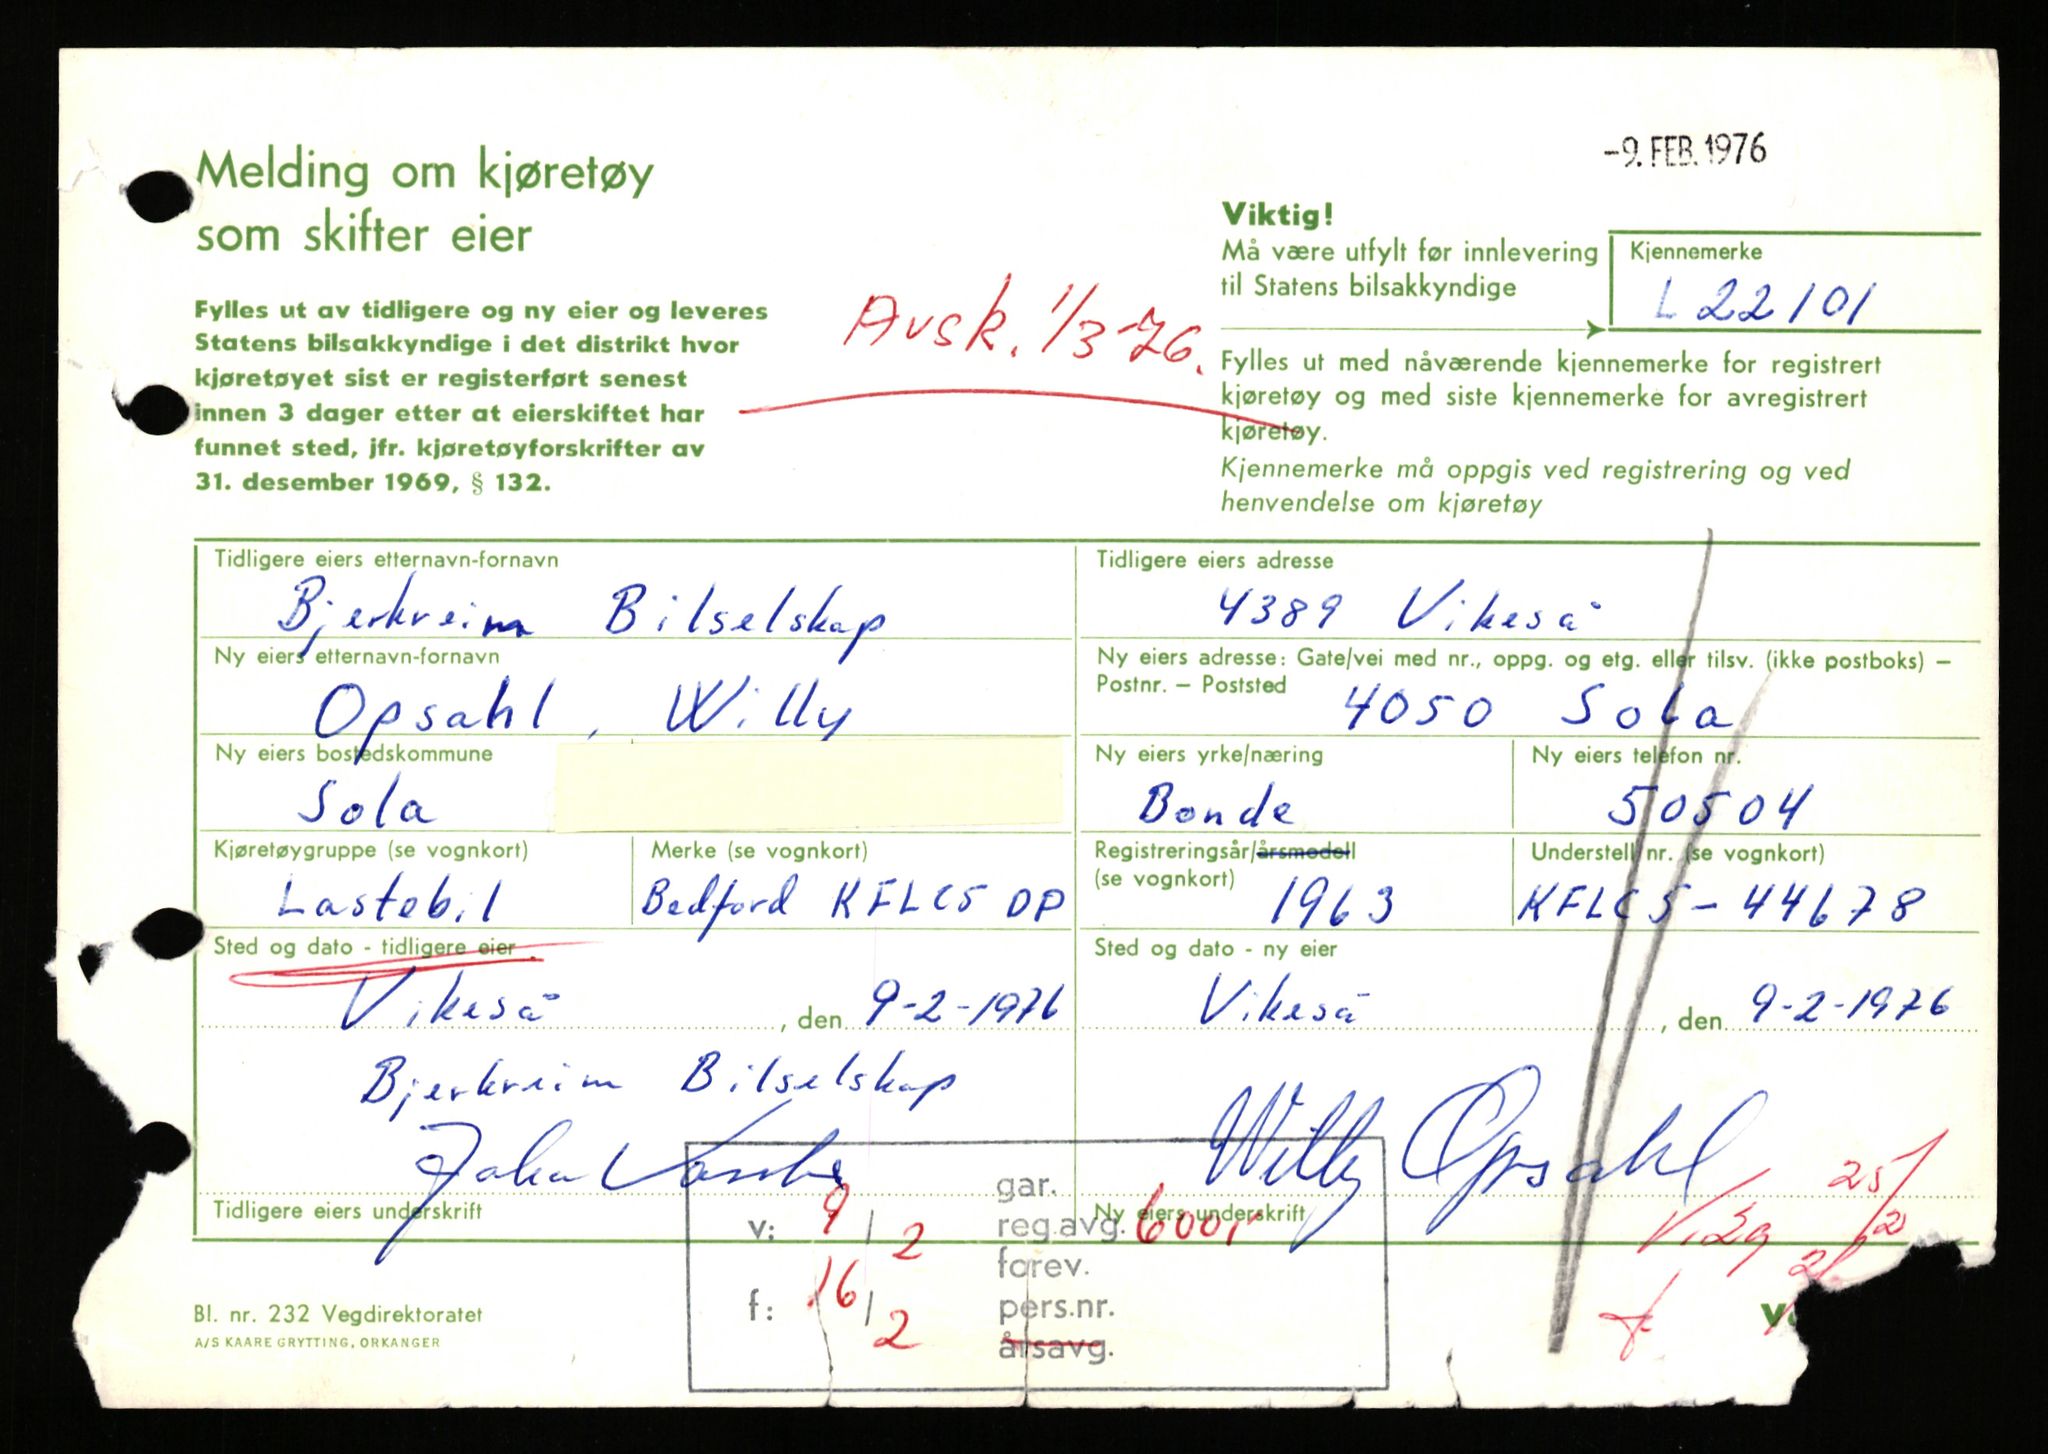 -9. FEB. 1976
Melding om kjøretøy
som skifter eier
Fylles ut av tidligere og ny eier og leveres
Statens bilsakkyndige i det distrikt hvor
kjøretøyet sist er registerført senest
innen 3 dager etter at eierskiftet har
funnet sted, jfr. kjøretøyforskrifter av
31. desember 1969, § 132.
Avsk. 1/3-76.
Viktig!
Må være utfylt før innlevering
til Statens bilsakkyndige
Kjennemerke
L 22101
Fylles ut med nåværende kjennemerke for registrert
kjøretøy og med siste kjennemerke for avregistrert
kjøretøy.
Kjennemerke må oppgis ved registrering og ved
henvendelse om kjøretøy
Tidligere eiers etternavn-fornavn
Bjerkreim Bilselskap
Tidligere eiers adresse
4389 Vikeså
Ny eiers etternavn-fornavn
Opsahl, Willy
Ny eiers adresse: Gate/vei med nr., oppg. og etg. eller tilsv. (ikke postboks) –
Postnr. – Poststed
4050 Sola
Ny eiers bostedskommune
Sola
Ny eiers yrke/næring
Bonde
Ny eiers telefon nr.
50504
Kjøretøygruppe (se vognkort)
Lastebil
Merke (se vognkort)
Bedford KFLC5 DP
Registreringsår/årsmodell
(se vognkort)
1963
Understell nr. (se vognkort)
KFLC5-44678
Sted og dato - tidligere eier
Vikeså, den 9-2-1976
Sted og dato - ny eier
Vikeså, den 9-2-1976
Bjerkreim Bilselskap
Willy Opsahl
Tidligere eiers underskrift
Ny eiers underskrift
gar.
v: 9/2 reg.avg. 600,-
forev.
f: 16/2 pers.nr.
årsavg.
25/2
Bl. nr. 232 Vegdirektoratet
A/S KAARE GRYTTING, ORKANGER